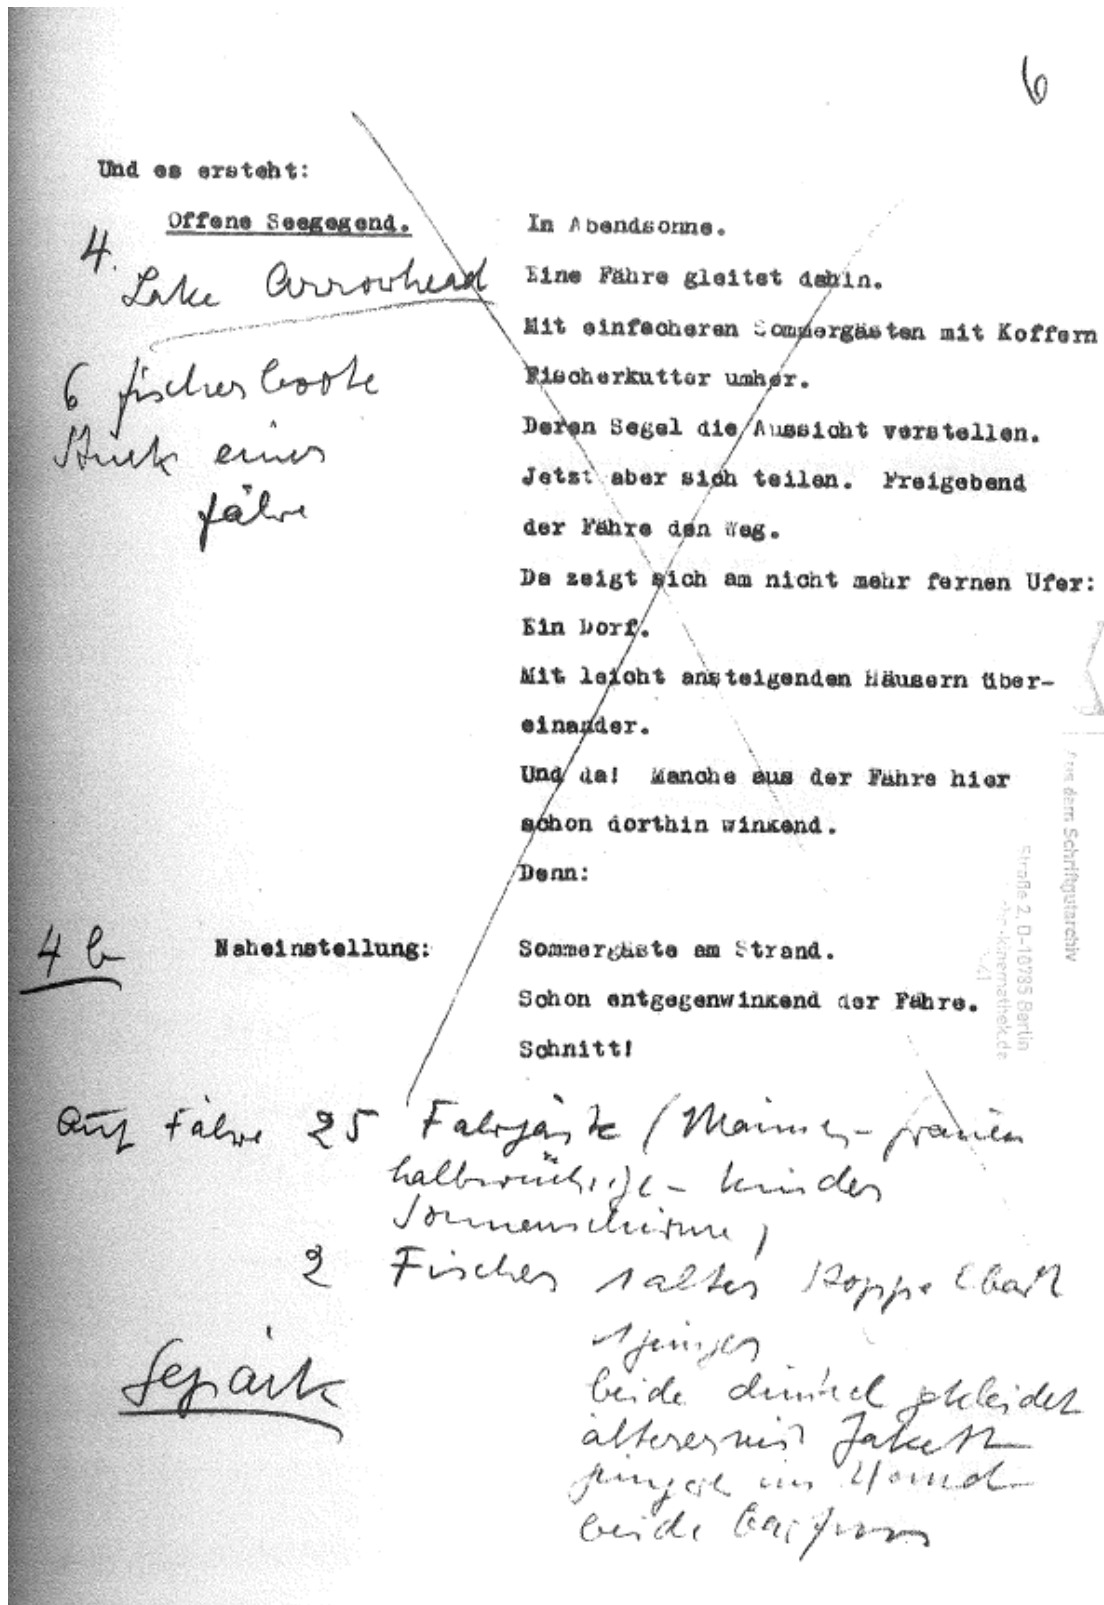 6
Und es ersteht:
Offene Seegegend.
4.
Lake Arrowhead
6 fischerboote
Stück einer
fähre
In Abendsonne.
Eine Fähre gleitet dahin.
Mit einfacheren Sommergästen mit Koffern
Fischerkutter umher.
Deren Segel die Aussicht verstellen.
Jetzt aber sich teilen. Freigebend
der Fähre den Weg.
Da zeigt sich am nicht mehr fernen Ufer:
Ein Dorf.
Mit leicht ansteigenden Häusern über-
einander.
Und da! Manche aus der Fähre hier
schon dorthin winkend.
Denn:
4 b
Naheinstellung:
Sommergäste am Strand.
Schon entgegenwinkend der Fähre.
Schnitt!
Auf Fähre 25 Fahrgäste (Männer-frauen
halbwüchsige - kinder
Sonnenschirme)
2 Fischer 1 alter
1 junger
Gepäck
beide dunkel gekleidet
älterer mit Jakett
im Hemd
beide barfuss
Aus dem Schriftgutarchiv
Straße 2, D-10785 Berlin
kinemathek.de